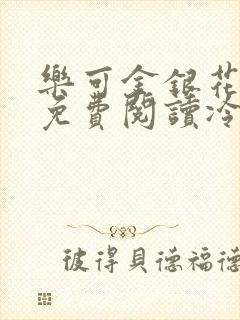 樂可金銀花
免費閱讀冷
彼得貝德福德